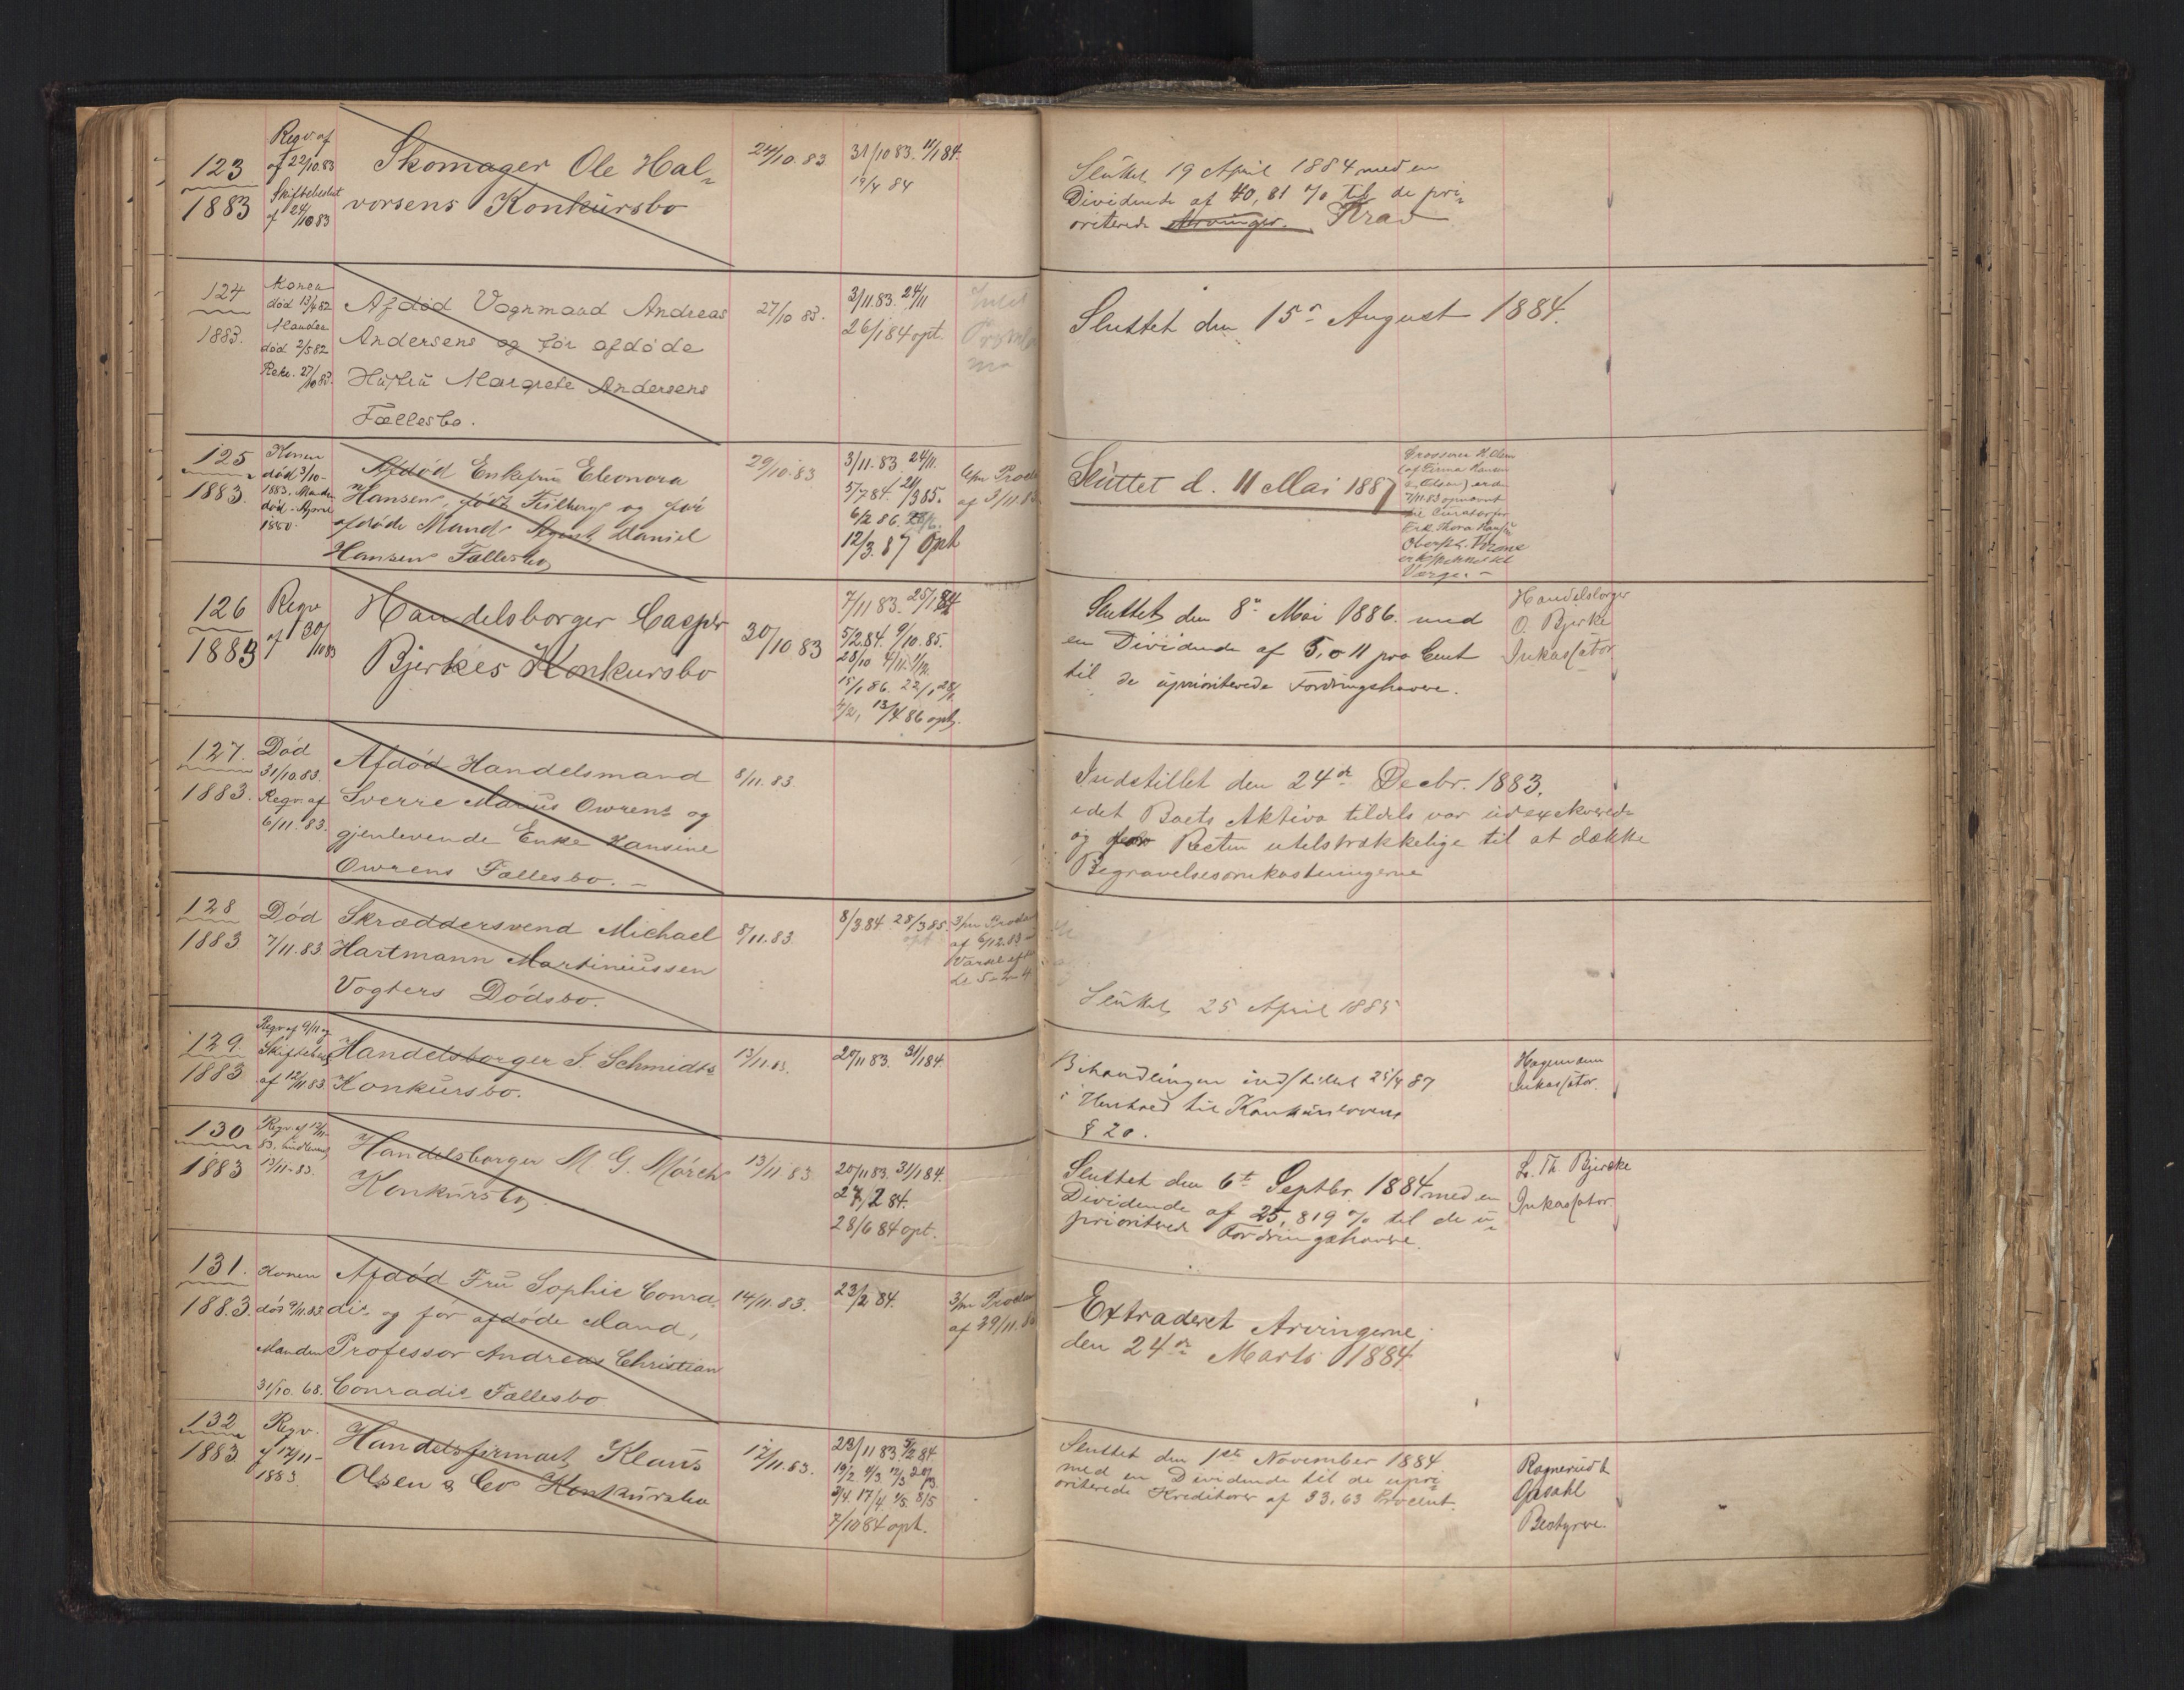 123
1883
Regv af
af 22/10.83
Skiftebeslut
af 24/10 83
Skomager Ole Hal-
vorsens Konkursbo
24/10.83
31/10 83. 11/1 84.
19/4 84
Sluttet 19 April 1884 med en
Dividende af 40,81 % til de pri-
oriterede Krav
124
1883.
Konen
død 13/4 82
Manden
død 2/5 82
Rekv. 27/10 83.
Afdød Vognmand Andreas
Andersens og før afdøde
Hustru Margrete Andersens
Fællesbo.
27/10 83.
3/11.83. 24/11
26/1 84 opt.
Sluttet den 15de August 1884.
125
1883.
Konen
død 3/10-
1883. Manden
død
1850.
Afdød Enkefru Eleonora
Hansen, født og før
afdøde Mand Agent Daniel
Hansens Fællesbo
29/10.83
3/11.83. 24/11.
5/7 84. /3 85.
6/2 86.
12/3. 87 opt
af 3/11.83
Sluttet d. 11 Mai 1887
Grosserer H. Olsen
(af Firma Hansen
& Olsen) er den
7/11.83 opnævnt
til Curator for
Frk. Thora Hansen
Værge. -
126
1883
Regv
af 30/10 83
Handelsborger Casper
Bjerkes Konkursbo
30/10 83
7/11 83. 25/1 84
5/2 84. 9/10. 85.
28/10
15/1 86. 22/1 28/1
13/4 86 opt.
Sluttet den 8de Mai 1886. med
en Dividende af 5,011 pro Cent
til de uprioriterede Fordringshavere.
Handelsborger
O. Bjerke
Inkassator
127.
1883.
Død
31/10.83.
Regv. af
6/11.83.
Afdød Handelsmand
Sverre Marius Owrens og
gjenlevende Enke Hansine
Owrens Fællesbo. -
8/11.83.
Indstillet den 24de Decbr. 1883.
idet Boets Aktiva tildels var udexekverede
og Resten utilstrækkelige til at dække
Begravelsesomkostningerne
128
1883
Død
7/11.83.
Skræddersvend Michael
Hartmann Martiniussen
Vogters Dødsbo.
8/11.83.
8/3.84. 28/3 85.
opt
af 6/12.83
Sluttet 25 April 1885
129.
1883
Regv af 9/11 og
Skiftebesl
af 12/11 83
Handelsborger J. Schmidts
Konkursbo.
13/11.83.
20/11 83. 31/1 84.
Behandlingen indstillet 25/4 87
i Henhold til Konkurslovens
§ 20.
Hagemann
Inkassator.
130
1883
Regv. af 12/11-
83. indlevert
13/11-83.
Handelsborger M G. Mørchs
Konkursbo
13/11 83
20/11 83. 31/1 84.
27/2 84.
28/6 84 opt.
Sluttet den 6te Septbr. 1884 med en
Dividende af 25,819 % til de u-
prioriterede Fordringshavere.
L. Th. Bjercke
Inkassator.
131.
1883.
Konen
død 9/11.83
Manden
31/10. 68.
Afdød Fru Sophie Conra-
dis og før afdøde Mand,
Professor Andreas Christian
Conradis Fællesbo
14/11.83.
23/2 84.
af 29/11.83
Extraderet Arvingerne
den 24de Marts 1884
132
1883
Regv.
af 17/11-
1883.
Handelsfirmaet Klaus
Olsen & Co Konkursbo
17/11.83.
23/11 83 5/2 84.
19/2. 4/3 12/3 20/3.
3/4. 17/4 1/5. 8/5
7/10 84 opt.
Sluttet den 1ste November 1884
med en Dividende til de upri-
oriterede Kreditorer af 33,63 Procent.
Bestyrere.